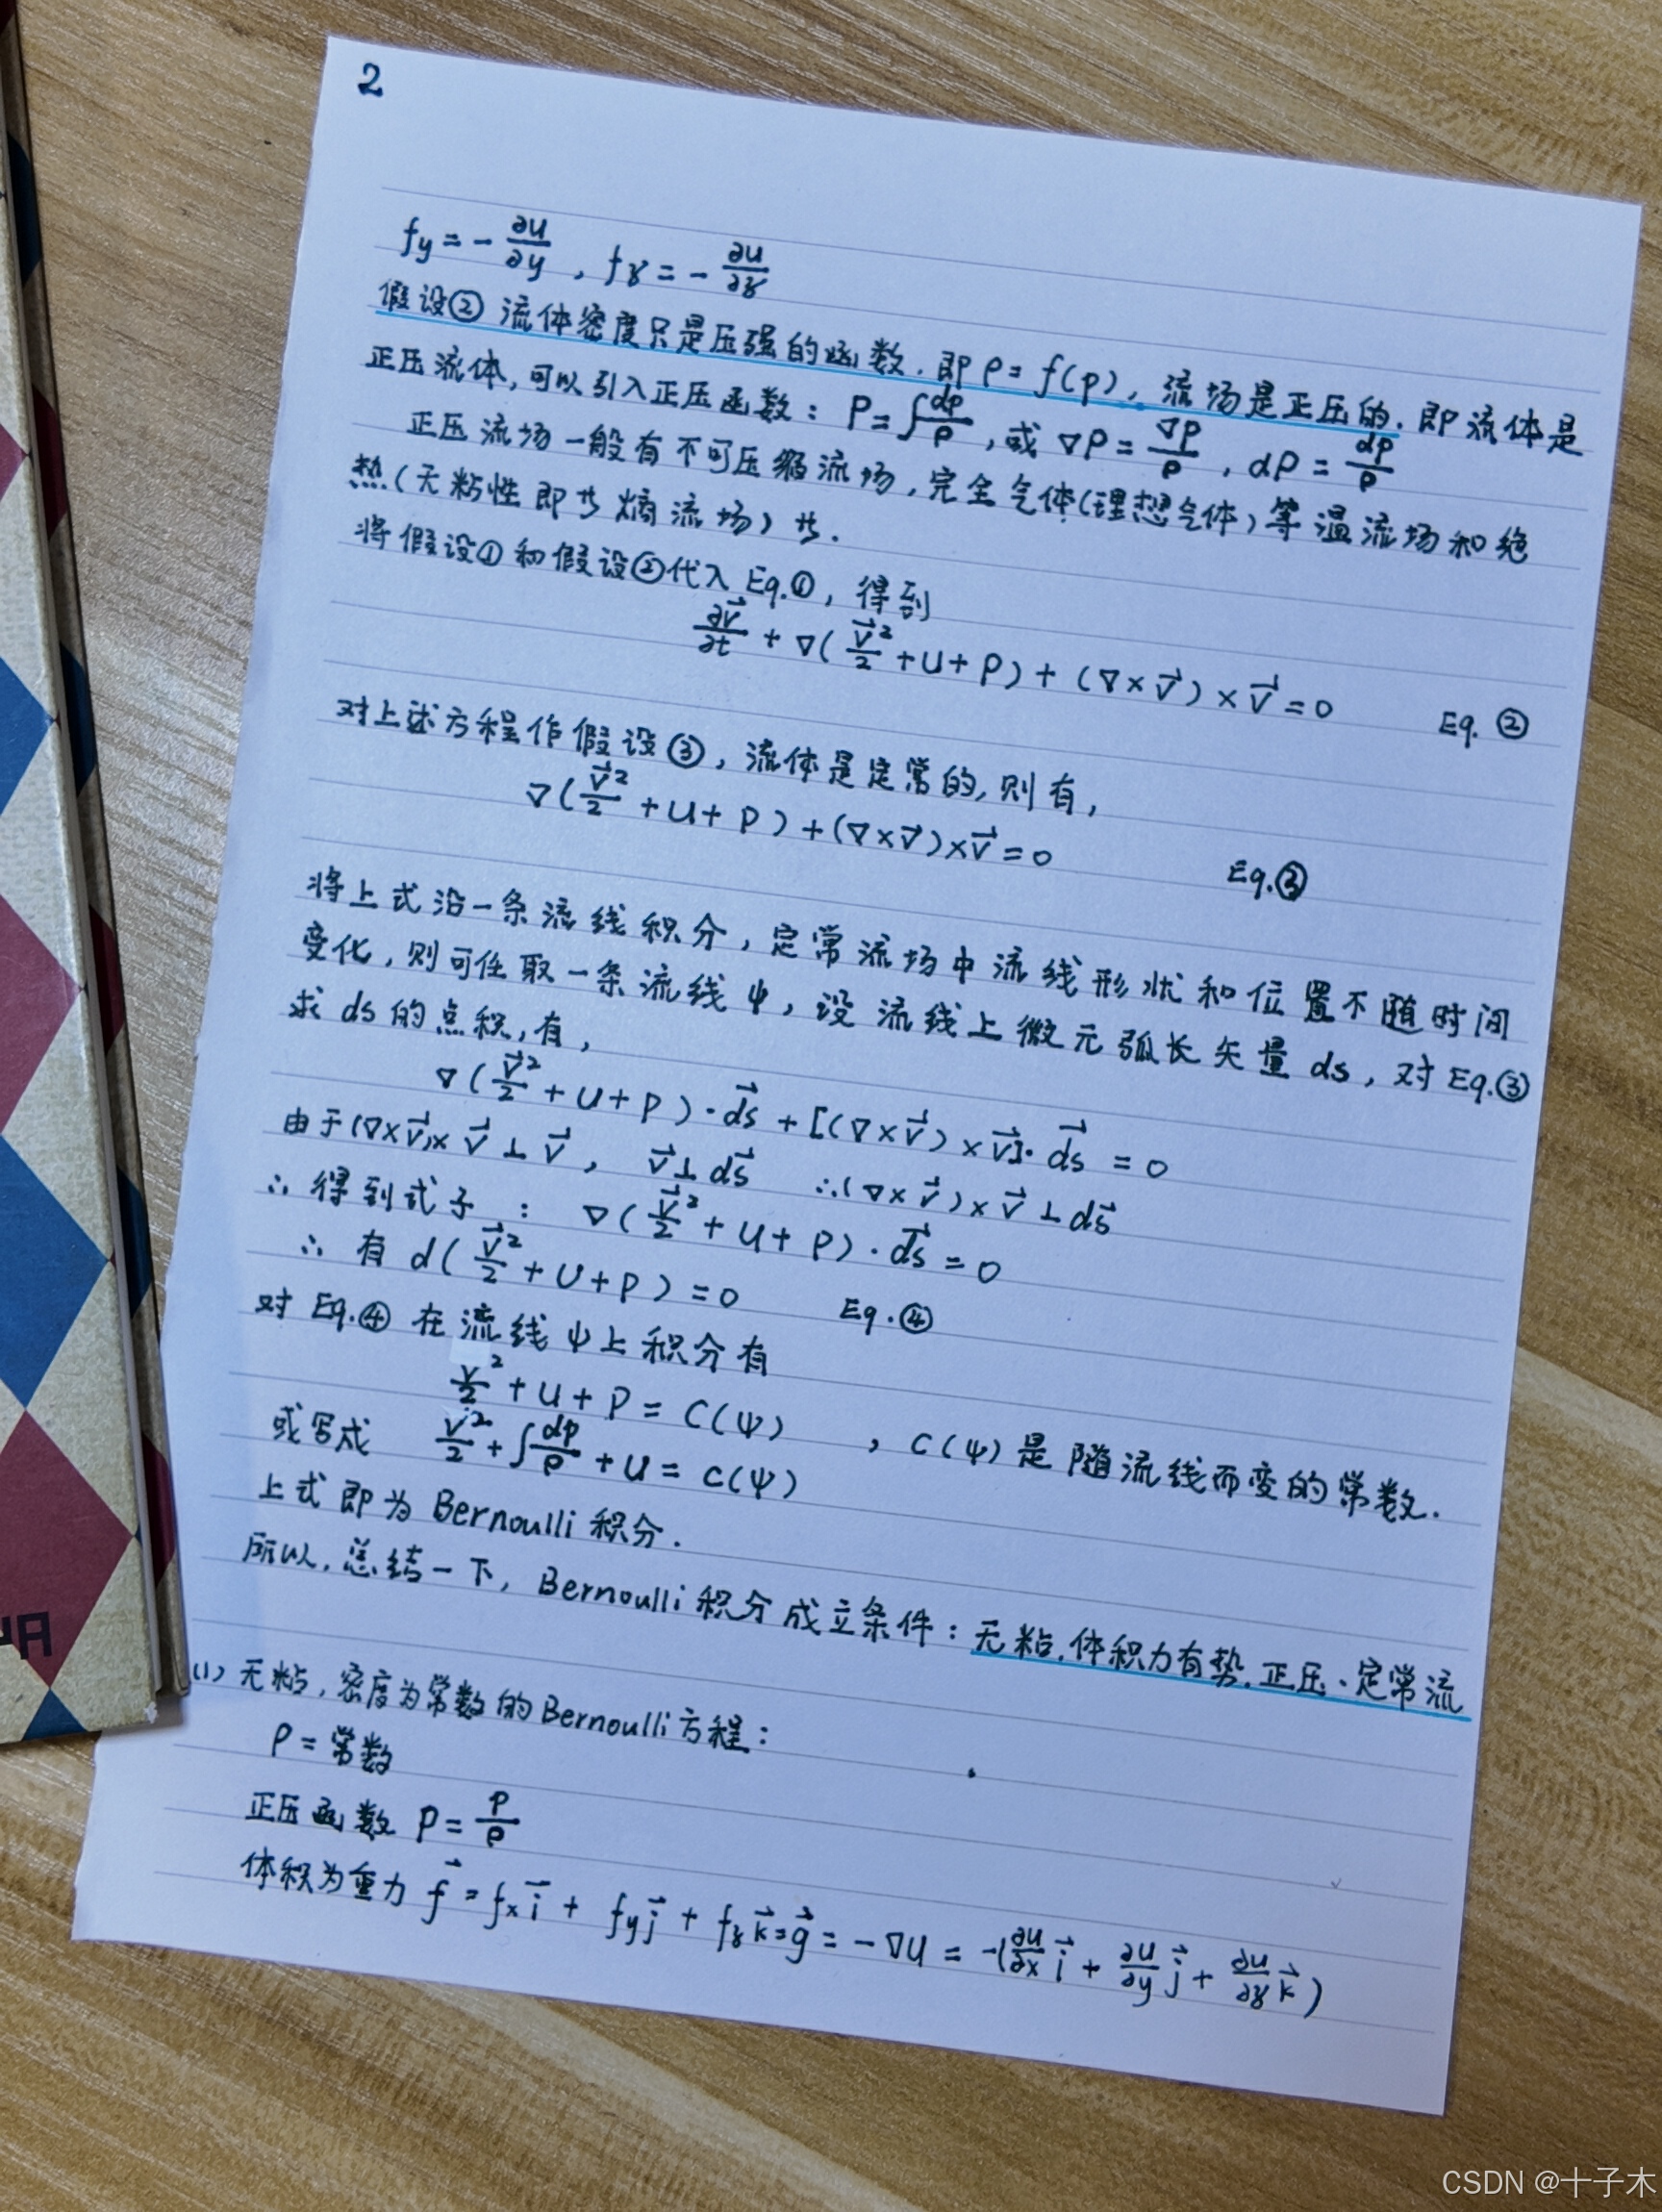 2
fy = - ∂U/∂y , fz = - ∂U/∂z
假设② 流体密度只是压强的函数.即 ρ = f(p), 流场是正压的.即流体是
正压流体,可以引入正压函数: P = ∫dp/ρ ,或 ∇P = ∇p/ρ , dP = dp/ρ
正压流场一般有不可压缩流场,完全气体(理想气体)等温流场和绝
热(无粘性即节熵流场)节.
将假设①和假设②代入 Eq.①, 得到
∂v⃗/∂t + ∇(v⃗²/2 + U + P) + (∇×v⃗)×v⃗ = 0 Eq. ②
对上述方程作假设③, 流体是定常的,则有,
∇(v⃗²/2 + U + P) + (∇×v⃗)×v⃗ = 0 Eq.③
将上式沿一条流线积分, 定常流场中流线形状和位置不随时间
变化, 则可任取一条流线ψ, 设流线上微元弧长矢量 ds, 对 Eq.③
求 ds 的点积,有,
∇(v⃗²/2 + U + P)·ds⃗ + [(∇×v⃗)×v⃗]·ds⃗ = 0
由于(∇×v⃗)×v⃗ ⊥ v⃗, v⃗ ⊥ ds⃗ ∴(∇×v⃗)×v⃗ ⊥ ds⃗
∴ 得到式子 : ∇(v⃗²/2 + U + P)·ds⃗ = 0
∴ 有 d(v⃗²/2 + U + P) = 0 Eq.④
对 Eq.④ 在流线ψ上积分有
v²/2 + U + P = C(ψ) , C(ψ)是随流线而变的常数.
或写成 v²/2 + ∫dp/ρ + U = C(ψ)
上式即为 Bernoulli 积分.
所以,总结一下, Bernoulli 积分成立条件: 无粘.体积力有势.正压、定常流
(1) 无粘, 密度为常数的Bernoulli方程:
ρ = 常数
正压函数 P = p/ρ
体积为重力 f⃗ = fx i⃗ + fy j⃗ + fz k⃗ = g⃗ = -∇U = -(∂U/∂x i⃗ + ∂U/∂y j⃗ + ∂U/∂z k⃗)
CSDN @十子木